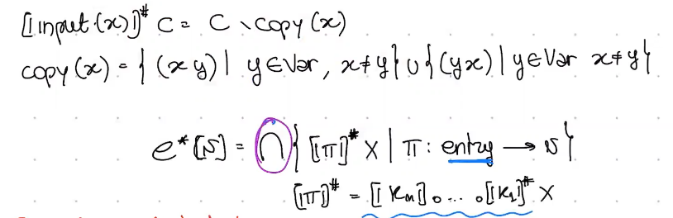 ⟦input(x)⟧# C = C \ copy(x)
copy(x) = { (x y) | y ∈ Var, x ≠ y } ∪ { (y x) | y ∈ Var x ≠ y }
e*[v] = ∩ { ⟦π⟧# X | π : entry → v }
⟦π⟧# = ⟦Kₙ⟧ ∘ ... ∘ ⟦K₁⟧# X